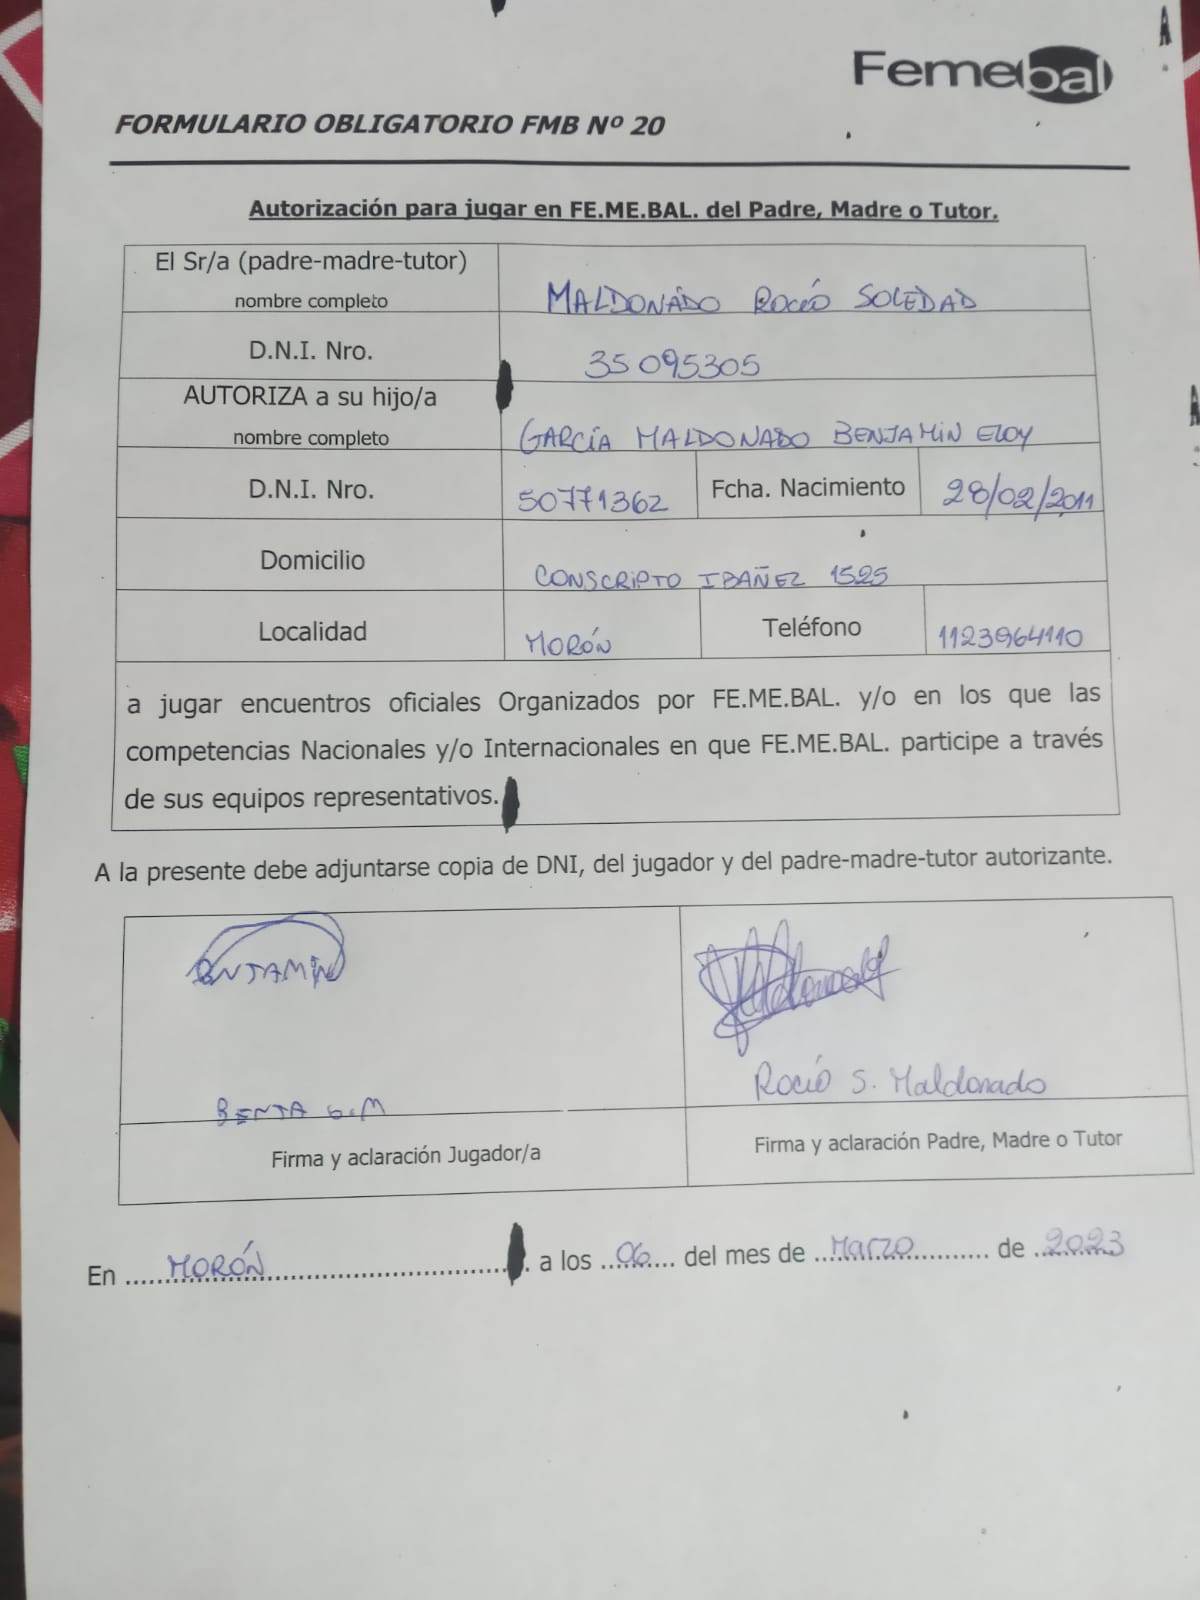 Femebal
FORMULARIO OBLIGATORIO FMB Nº 20
Autorización para jugar en FE.ME.BAL. del Padre, Madre o Tutor.
El Sr/a (padre-madre-tutor)
nombre completo
MALDONADO ROCÍO SOLEDAD
D.N.I. Nro.
35095305
AUTORIZA a su hijo/a
nombre completo
GARCÍA MALDONADO BENJAMIN ELOY
D.N.I. Nro.
50771362
Fcha. Nacimiento
28/02/2011
Domicilio
CONSCRIPTO IBAÑEZ 1525
Localidad
MORÓN
Teléfono
1123964110
a jugar encuentros oficiales Organizados por FE.ME.BAL. y/o en los que las
competencias Nacionales y/o Internacionales en que FE.ME.BAL. participe a través
de sus equipos representativos.
A la presente debe adjuntarse copia de DNI, del jugador y del padre-madre-tutor autorizante.
BNJAMIN
Maldonado
BENJA G.M
Rocío S. Maldonado
Firma y aclaración Jugador/a
Firma y aclaración Padre, Madre o Tutor
En MORÓN a los 06 del mes de Marzo de 2023